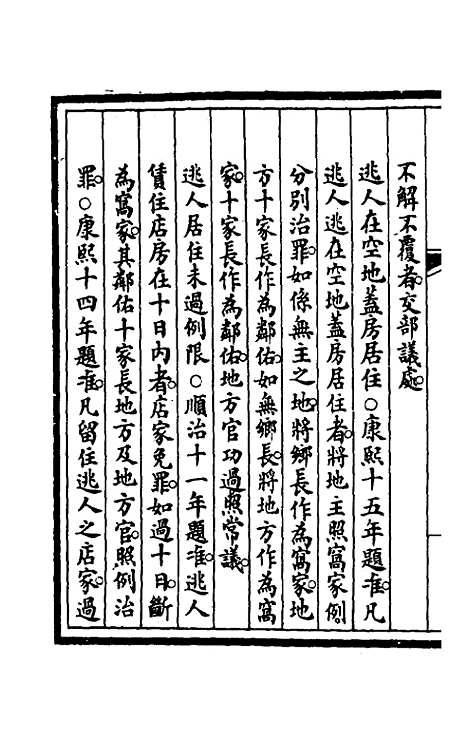 不解不覆者。交部議處。
逃人在空地蓋房居住○康熙十五年題准。凡
逃人逃在空地蓋房居住者。將地主照窩家例。
分別治罪。如係無主之地。將鄉長作為窩家。地
方十家長作為鄰佑。如無鄉長。將地方作為窩
家。十家長作為鄰佑。地方官功過照常議。
逃人居住未過例限○順治十一年題准。逃人
賃住店房在十日內者。店家免罪。如過十日。斷
為窩家。其鄰佑十家長地方及地方官。照例治
罪。○康熙十四年題准。凡留住逃人之店家。過